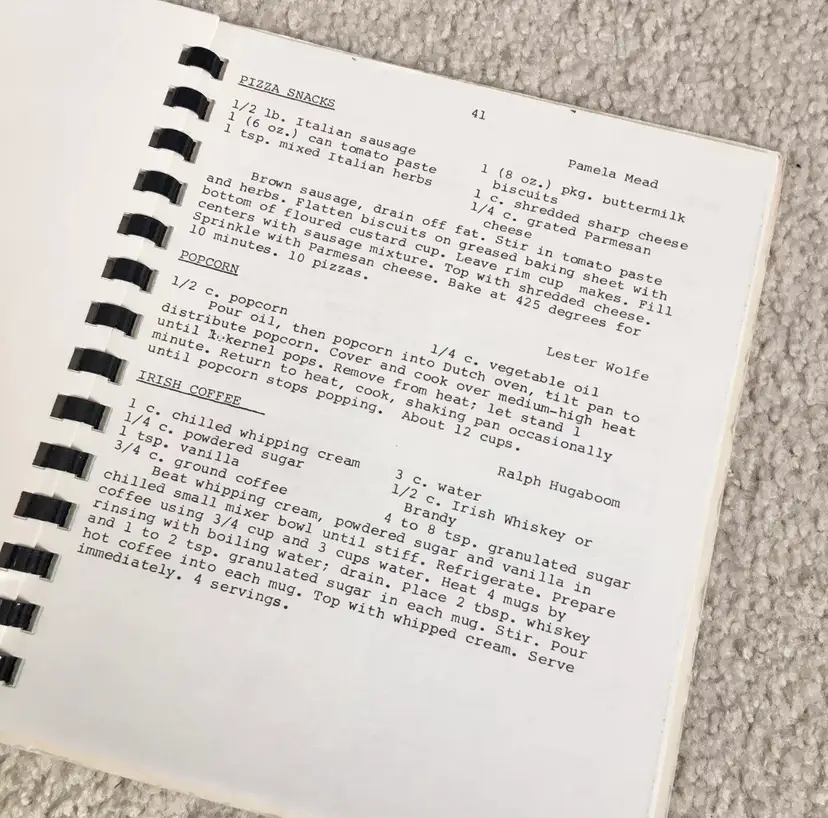 41
PIZZA SNACKS
Pamela Mead
1/2 lb. Italian sausage
1 (6 oz.) can tomato paste
1 tsp. mixed Italian herbs
1 (8 oz.) pkg. buttermilk
biscuits
1 c. shredded sharp cheese
1/4 c. grated Parmesan
cheese
Brown sausage, drain off fat. Stir in tomato paste
and herbs. Flatten biscuits on greased baking sheet with
bottom of floured custard cup. Leave rim cup makes. Fill
centers with sausage mixture. Top with shredded cheese.
Sprinkle with Parmesan cheese. Bake at 425 degrees for
10 minutes. 10 pizzas.
POPCORN
Lester Wolfe
1/2 c. popcorn
1/4 c. vegetable oil
Pour oil, then popcorn into Dutch oven, tilt pan to
distribute popcorn. Cover and cook over medium-high heat
until 1 kernel pops. Remove from heat; let stand 1
minute. Return to heat, cook, shaking pan occasionally
until popcorn stops popping. About 12 cups.
IRISH COFFEE
Ralph Hugaboom
1 c. chilled whipping cream
1/4 c. powdered sugar
1 tsp. vanilla
3/4 c. ground coffee
3 c. water
1/2 c. Irish Whiskey or
Brandy
4 to 8 tsp. granulated sugar
Beat whipping cream, powdered sugar and vanilla in
chilled small mixer bowl until stiff. Refrigerate. Prepare
coffee using 3/4 cup and 3 cups water. Heat 4 mugs by
rinsing with boiling water; drain. Place 2 tbsp. whiskey
and 1 to 2 tsp. granulated sugar in each mug. Stir. Pour
hot coffee into each mug. Top with whipped cream. Serve
immediately. 4 servings.